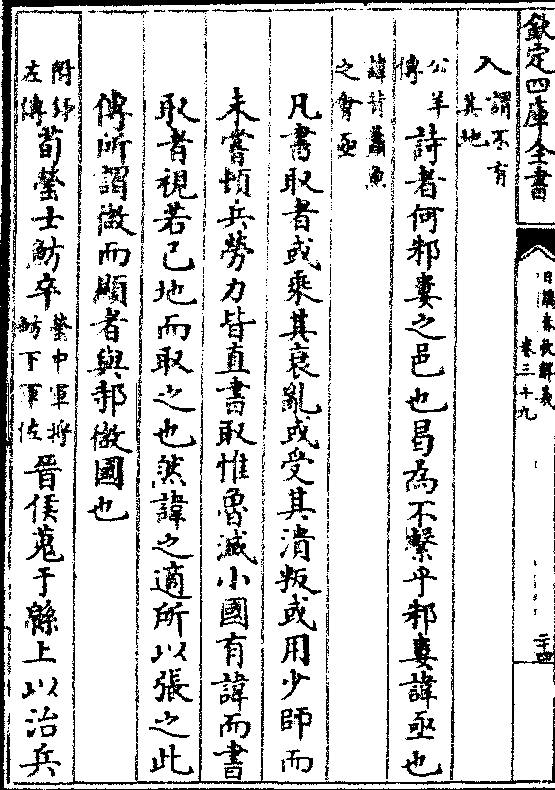 欽定四庫全書
日講春秋解義
卷三十九
二十四
入謂不有其地
公羊傳詩者何邾婁之邑也曷為不繫乎邾婁諱亟也
諱詩蕭魚之會亟
凡書取者或乘其衰亂或受其潰叛或用少師而
未嘗頓兵勞力皆直書取惟魯滅小國有諱而書
取者視若己地而取之也然諱之適所以張之此
傳所謂微而顯者與邿微國也
附録左傳荀罃士魴卒罃中軍將魴下軍佐晉侯蒐于緜上以治兵